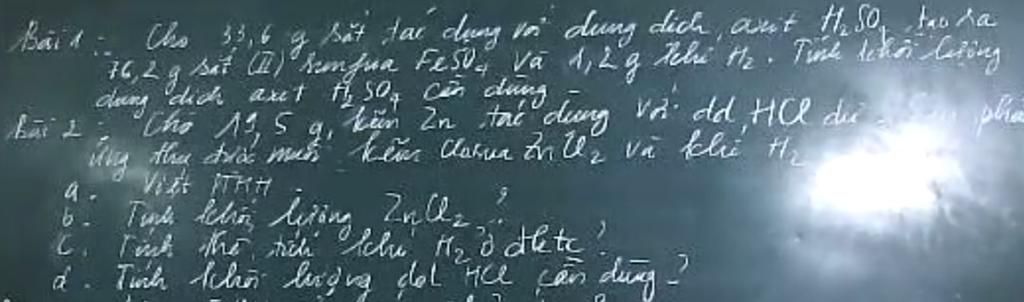 Bài 1: Cho 33,6 g sắt tác dụng với dung dịch axit H2SO4 tạo ra
76,2 g sắt (II) sunfua FeSO4 và 1,2 g khí H2. Tính khối lượng
dung dịch axit H2SO4 cần dùng
Bài 2: Cho 19,5 g kẽm Zn tác dụng với dd HCl dư phả
ứng thu được muối kẽm clorua ZnCl2 và khí H2
a. Viết PTHH
b. Tính khối lượng ZnCl2?
c. Tính thể tích khí H2 ở đktc?
d. Tính khối lượng dd HCl cần dùng?